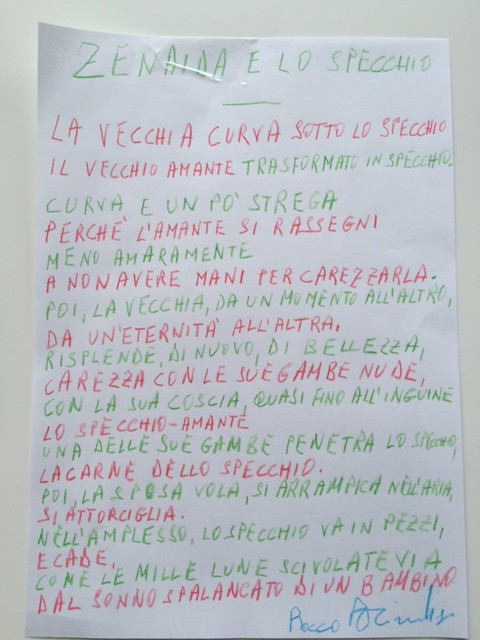 ZENAIDA E LO SPECCHIO
LA VECCHIA CURVA SOTTO LO SPECCHIO
IL VECCHIO AMANTE TRASFORMATO IN SPECCHIO.
CURVA E UN PO' STREGA
PERCHE' L'AMANTE SI RASSEGNI
MENO AMARAMENTE
A NON AVERE MANI PER CAREZZARLA.
POI, LA VECCHIA, DA UN MOMENTO ALL'ALTRO,
DA UN'ETERNITA' ALL'ALTRA,
RISPLENDE, DI NUOVO, DI BELLEZZA,
CAREZZA CON LE SUE GAMBE NUDE,
CON LA SUA COSCIA, QUASI FINO ALL'INGUINE
LO SPECCHIO-AMANTE
UNA DELLE SUE GAMBE PENETRA LO SPECCHIO,
LA CARNE DELLO SPECCHIO.
POI, LA SPOSA VOLA, SI ARRAMPICA NELL'ARIA,
SI ATTORCIGLIA.
NELL'AMPLESSO, LO SPECCHIO VA IN PEZZI,
E CADE,
COME LE MILLE LUNE SCIVOLATE VIA
DAL SONNO SPALANCATO DI UN BAMBINO
Rocco